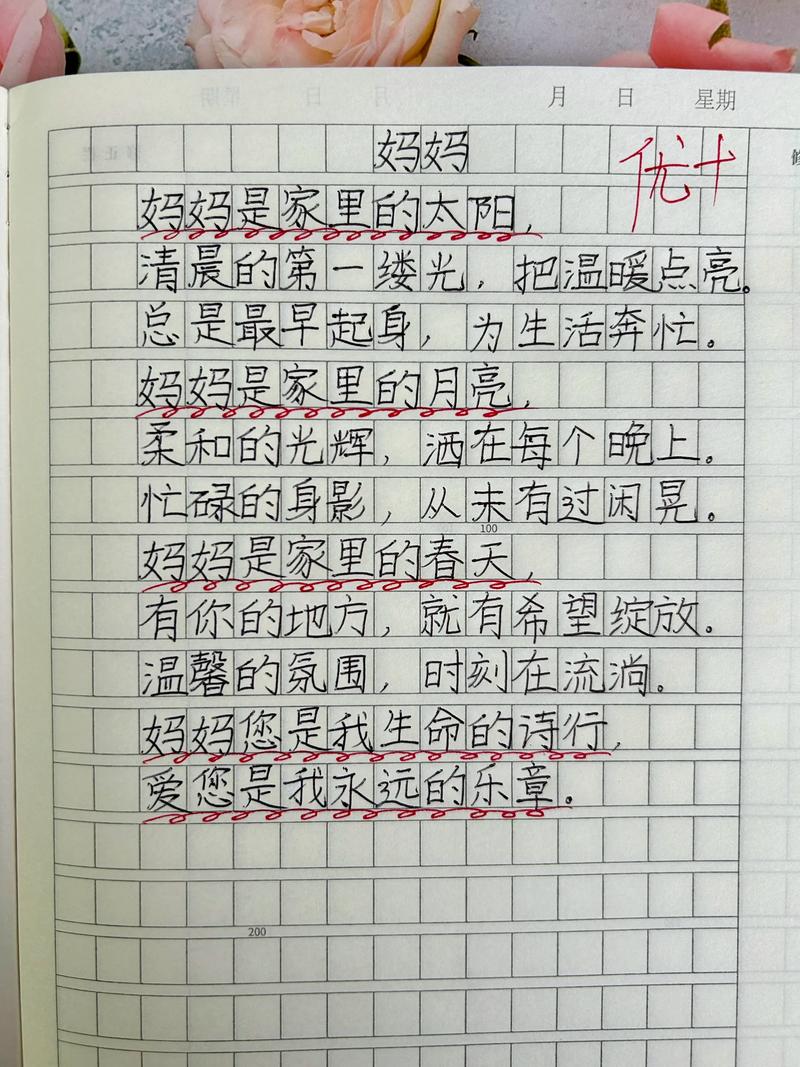 月 日 星期
妈妈
优+
妈妈是家里的太阳，
清晨的第一缕光，把温暖点亮。
总是最早起身，为生活奔忙。
妈妈是家里的月亮，
柔和的光辉，洒在每个晚上。
忙碌的身影，从未有过闲晃。
100
妈妈是家里的春天，
有你的地方，就有希望绽放。
温馨的氛围，时刻在流淌。
妈妈您是我生命的诗行，
爱您是我永远的乐章。
200